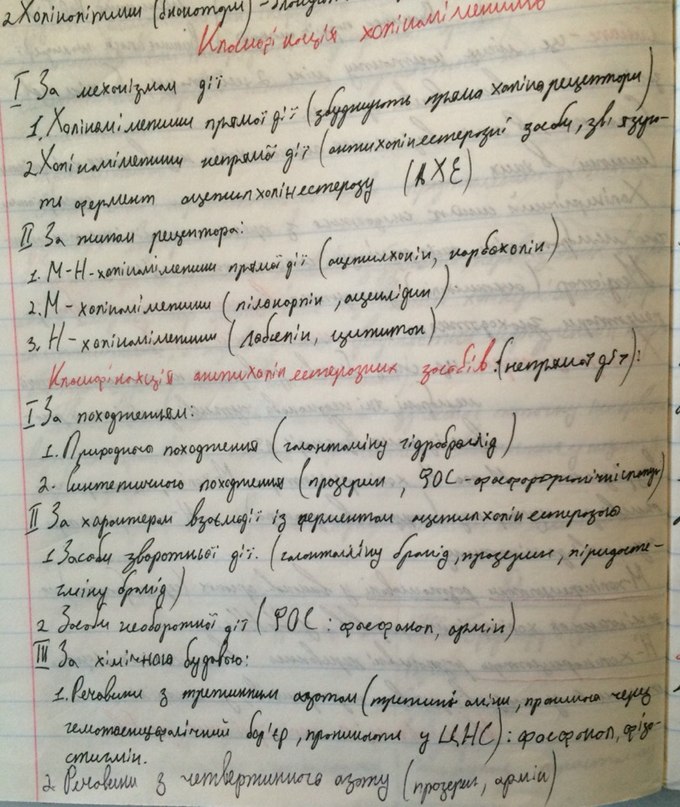 2. Холінолітики (блокатори) -
Класифікація холіноміметиків
I За механізмом дії
1. Холіноміметики прямої дії (збуджують прямо холінорецептори)
2. Холіноміметики непрямої дії (антихолінестеразні засоби, зв'язую-
ть фермент ацетилхолінестеразу (АХЕ)
II За типом рецептора:
1. М-Н-холіноміметики прямої дії (ацетилхолін, карбахолін)
2. М-холіноміметики (пілокарпін, ацеклідин)
3. Н-холіноміметики (лобелін, цититон)
Класифікація антихолінестеразних засобів (непрямої дії):
I За походженням:
1. Природного походження (галантаміну гідробромід)
2. Синтетичного походження (прозерин, ФОС - фосфорорганічні сполуки)
II За характером взаємодії із ферментом ацетилхолінестеразою
1 Засоби зворотньої дії. (галантаміну бромід, прозерин, піридосте-
гміну бромід)
2 Засоби необоротної дії (ФОС: фосфакол, армін)
III За хімічною будовою:
1. Речовини з третинним азотом (третинні аміни, проникна через
гематоенцефалічний бар'єр, проникають у ЦНС): фосфакол, фізо-
стигмін.
2. Речовини з четвертинного азоту (прозерин, армін)